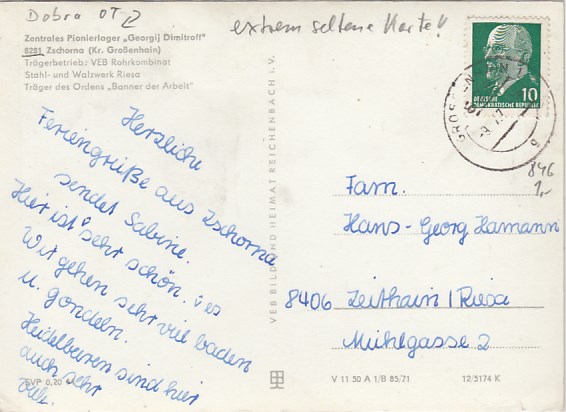 Dobra OT
extrem seltene Karte!!
Zentrales Pionierlager „Georgij Dimitroff"
8281 Zschorna (Kr. Großenhain)
Trägerbetrieb: VEB Rohrkombinat
Stahl- und Walzwerk Riesa
Träger des Ordens „Banner der Arbeit"
10
DEUTSCHE
DEMOKRATISCHE REPUBLIK
846
1,-
Herzliche
Feriengrüße aus Zschorna
sendet Sabine.
Hier ist es sehr schön.
Wir gehen sehr viel baden
u. gondeln.
Heidelbeeren sind hier
auch sehr
viele.
VEB BILD UND HEIMAT REICHENBACH i.V.
Fam.
Hans-Georg Hamann
8406 Zeithain / Riesa
Mühlgasse 2
EVP 0,20
V 11 50 A 1/B 85/71
12/5174 K